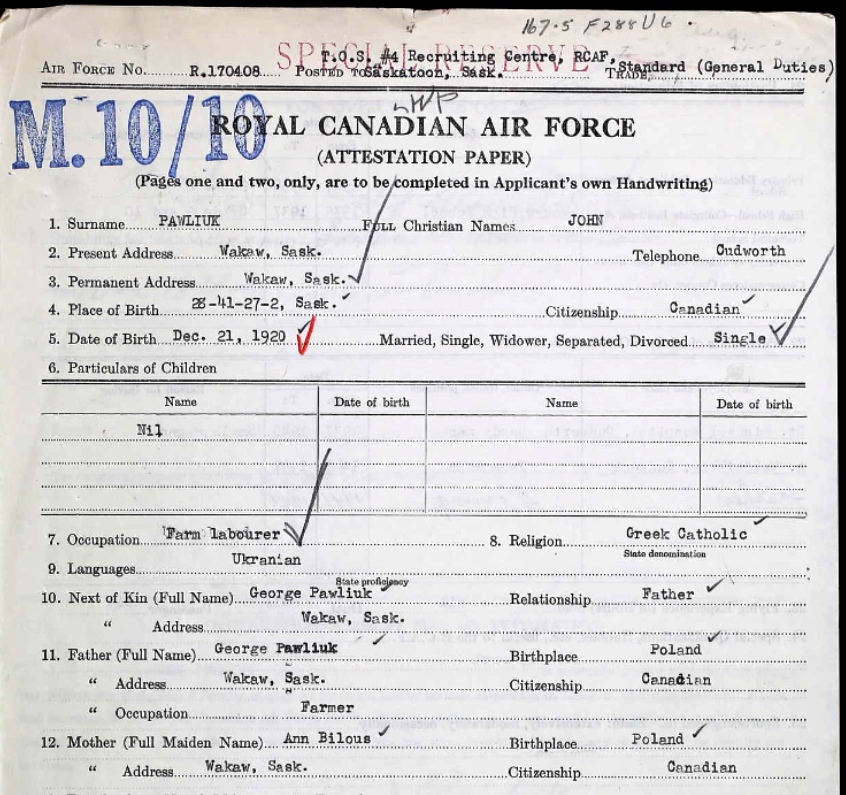 167.5 F288U6.
SPECIAL RESERVE
T.O.S. #4 Recruiting Centre, RCAF,
AIR FORCE No. R.170408 POSTED TO Saskatoon, Sask. TRADE Standard (General Duties)
M.10/10
ROYAL CANADIAN AIR FORCE
(ATTESTATION PAPER)
(Pages one and two, only, are to be completed in Applicant's own Handwriting)
1. Surname PAWLIUK FULL Christian Names JOHN
2. Present Address Wakaw, Sask. Telephone Cudworth
3. Permanent Address Wakaw, Sask.
4. Place of Birth 28-41-27-2, Sask. Citizenship Canadian
5. Date of Birth Dec. 21, 1920 Married, Single, Widower, Separated, Divorced Single
6. Particulars of Children
Name Date of birth Name Date of birth
Nil
7. Occupation Farm labourer 8. Religion Greek Catholic
State denomination
9. Languages Ukranian
State proficiency
10. Next of Kin (Full Name) George Pawliuk Relationship Father
" Address Wakaw, Sask.
11. Father (Full Name) George Pawliuk Birthplace Poland
" Address Wakaw, Sask. Citizenship Canadian
" Occupation Farmer
12. Mother (Full Maiden Name) Ann Bilous Birthplace Poland
" Address Wakaw, Sask. Citizenship Canadian